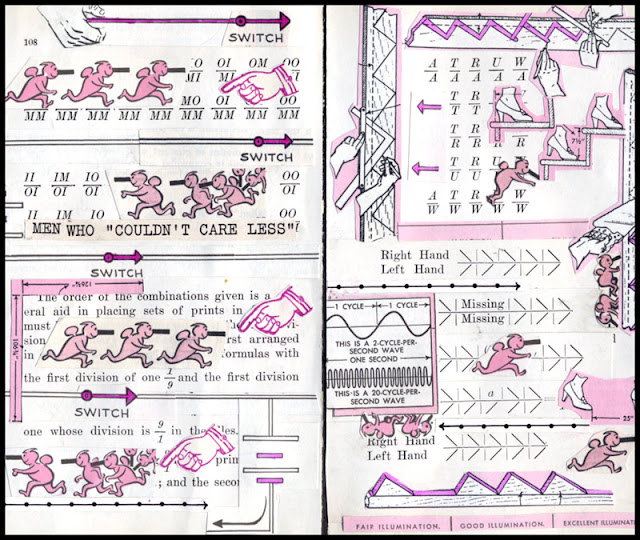 108
SWITCH
OI OM OO
MI
MO OI OO
MM MM MM MM MM MM MM MM
SWITCH
II IM IO OO
OI OI OI OI
II IM IO OO
MEN WHO "COULDN'T CARE LESS"!
SWITCH
126⅝"
106⅝"
The order of the combinations given is a
eral aid in placing sets of prints in
must
sion
rst arranged
in formulas with
the first division of one 1/9 and the first division
SWITCH
one whose division is 9/1 in the
; and the secon
A T R U W
A A A A A
T R
T T
T R
R R R
T R U
U U
A T R U W
W W W W W
7½"
Right Hand
Left Hand
1 CYCLE 1 CYCLE
THIS IS A 2-CYCLE-PER-
SECOND WAVE
ONE SECOND
THIS IS A 20-CYCLE-PER-
SECOND WAVE
Missing
Missing
a
25"
Right Hand
Left Hand
FAIR ILLUMINATION. GOOD ILLUMINATION. EXCELLENT ILLUMINAT